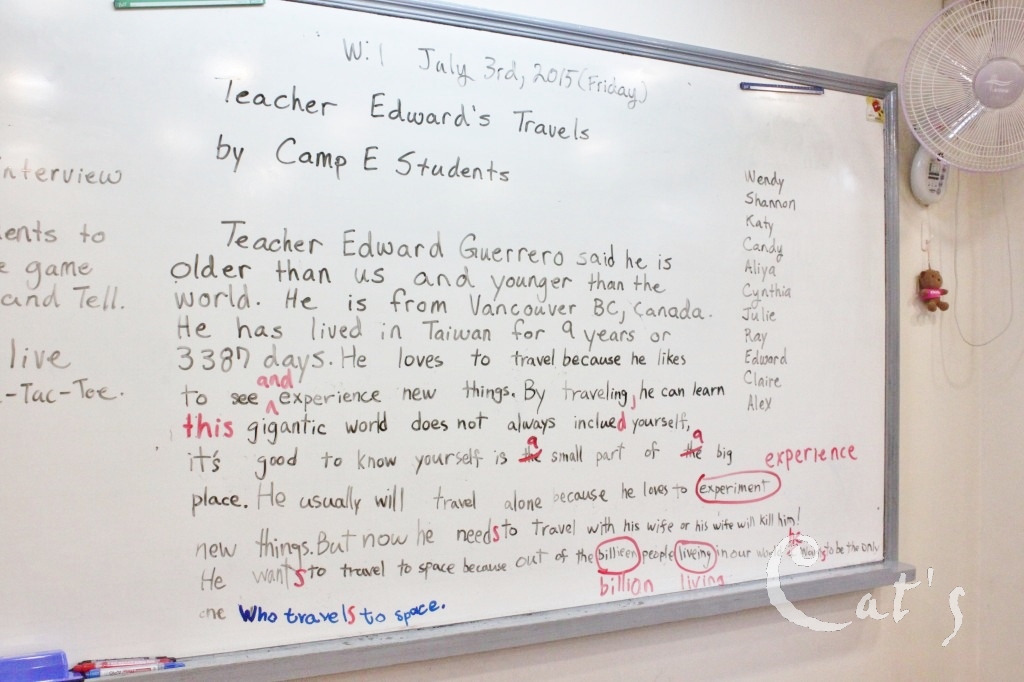 W.1 July 3rd, 2015 (Friday)
Teacher Edward's Travels
by Camp E Students
Interview
ents to
e game
and Tell.
live
-Tac-Toe.
Teacher Edward Guerrero said he is
older than us and younger than the
world. He is from Vancouver BC, Canada.
He has lived in Taiwan for 9 years or
3387 days. He loves to travel because he likes
and
to see experience new things. By traveling, he can learn
this gigantic world does not always inclued yourself,
a a
it's good to know yourself is the small part of the big
experience
place. He usually will travel alone because he loves to experiment
new things. But now he needs to travel with his wife or his wife will kill him!
he
He wants to travel to space because out of the billieen people liveing in our world wants to be the only
billion living
one who travels to space.
Wendy
Shannon
Katy
Candy
Aliya
Cynthia
Julie
Ray
Edward
Claire
Alex
Cat's